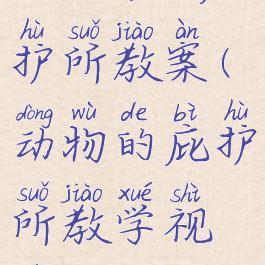 hù suǒ jiào àn
护所教案(
dòng wù de bì hù
动物的庇护
suǒ jiào xué shì
所教学视